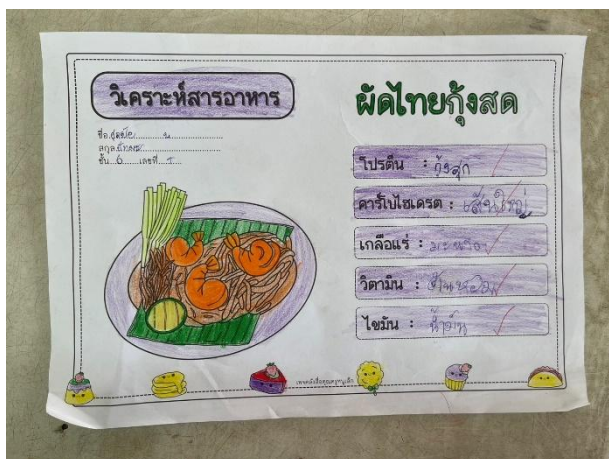 วิเคราะห์สารอาหาร
ผัดไทยกุ้งสด
ชื่อ
สกุล
ชั้น 6 เลขที่
โปรตีน : กุ้งสด
คาร์โบไฮเดรต : เส้นใหญ่
เกลือแร่ : มะนาว
วิตามิน : ต้นหอม
ไขมัน : น้ำมัน